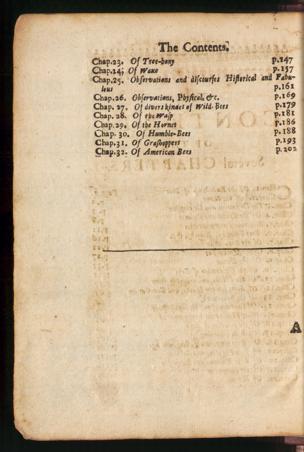 The Contents.
Chap.23. Of Tree-hony p.147
Chap.24. Of Waxe p.157
Chap.25. Observations and discourses Historical and Fabu-
lous p.162
Chap.26. Observations, Physical, &c. p.169
Chap. 27. Of divers kindes of Wild-Bees p.179
Chap. 28. Of the Wasp p.181
Chap.29. Of the Hornet p.186
Chap. 30. Of Humble-Bees p.188
Chap.31. Of Grashoppers p.193
Chap.32. Of American Bees p.202
A